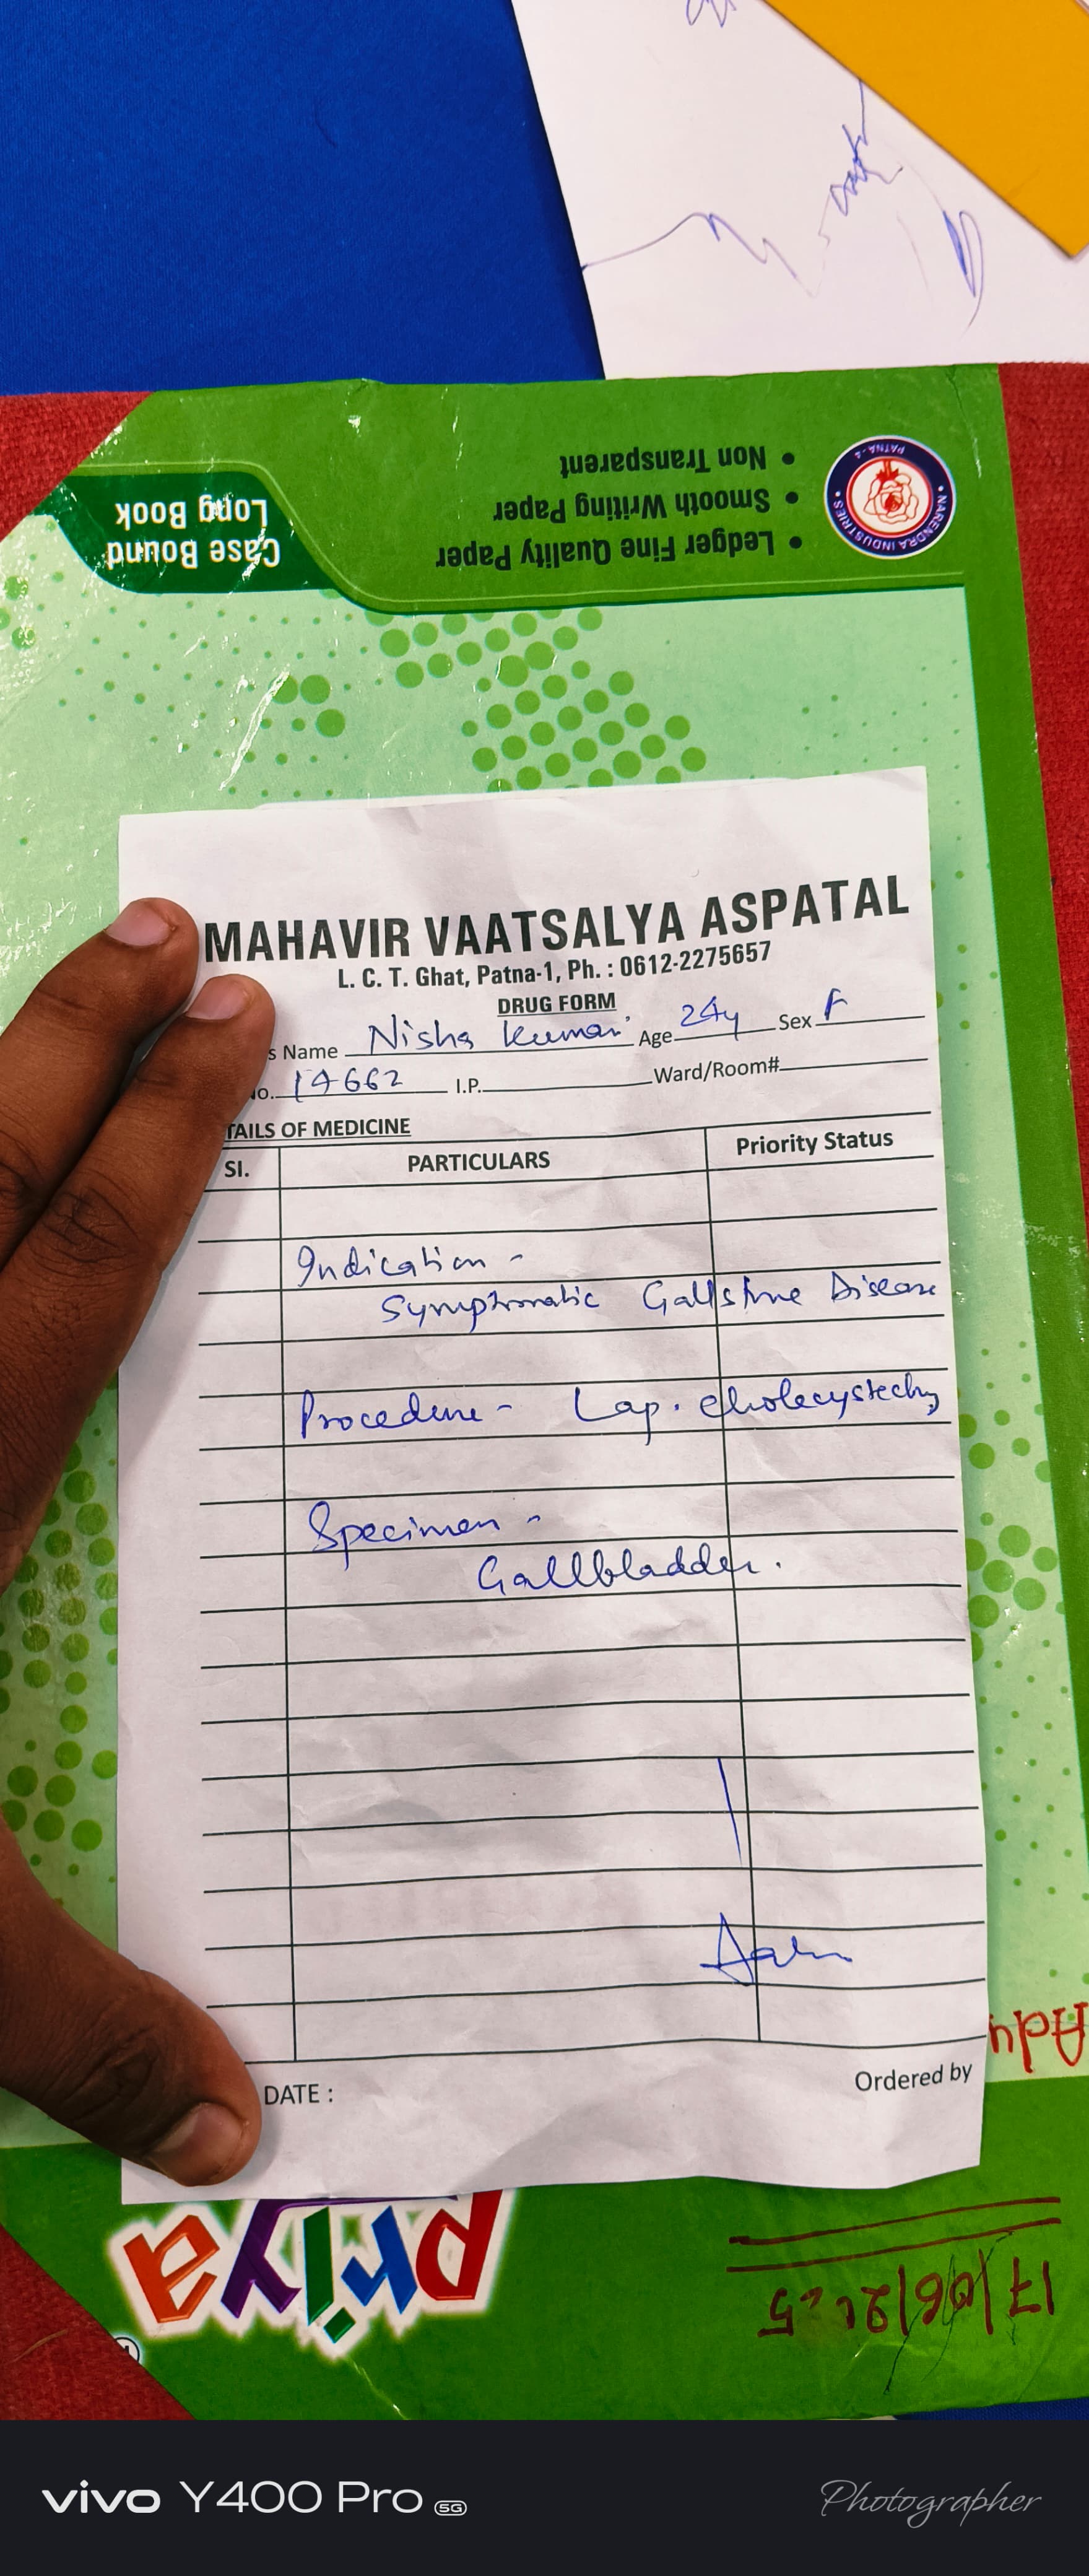 Case Bound
Long Book
• Ledger Fine Quality Paper
• Smooth Writing Paper
• Non Transparent
NARENDRA INDUSTRIES
PATNA-4
MAHAVIR VAATSALYA ASPATAL
L. C. T. Ghat, Patna-1, Ph. : 0612-2275657
DRUG FORM
s Name Nisha Kumari Age 24y Sex F
No. 14662 I.P. Ward/Room#
TAILS OF MEDICINE
SI. PARTICULARS Priority Status
Indication -
Symptomatic Gallstone Disease
Procedure - Lap. cholecystectomy
Specimen -
Gallbladder.
DATE :
Ordered by
Priya
17/06/2025
vivo Y400 Pro 5G
Photographer